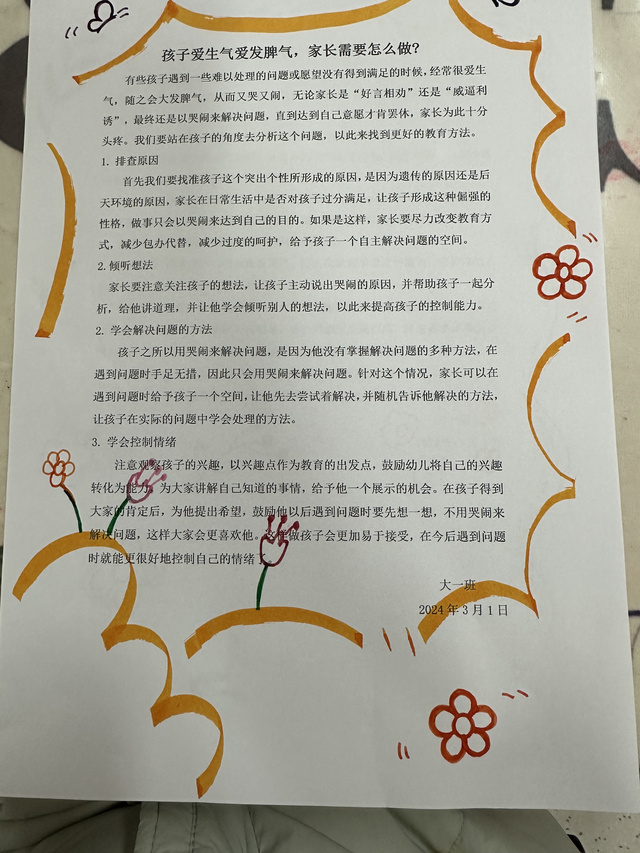 孩子爱生气爱发脾气，家长需要怎么做?
有些孩子遇到一些难以处理的问题或愿望没有得到满足的时候，经常很爱生
气，随之会大发脾气，从而又哭又闹，无论家长是“好言相劝”还是“威逼利
诱”，最终还是以哭闹来解决问题，直到达到自己意愿才肯罢休，家长为此十分
头疼。我们要站在孩子的角度去分析这个问题，以此来找到更好的教育方法。
1. 排查原因
首先我们要找准孩子这个突出个性所形成的原因，是因为遗传的原因还是后
天环境的原因，家长在日常生活中是否对孩子过分满足，让孩子形成这种倔强的
性格，做事只会以哭闹来达到自己的目的。如果是这样，家长要尽力改变教育方
式，减少包办代替，减少过度的呵护，给予孩子一个自主解决问题的空间。
2.倾听想法
家长要注意关注孩子的想法，让孩子主动说出哭闹的原因，并帮助孩子一起分
析，给他讲道理，并让他学会倾听别人的想法，以此来提高孩子的控制能力。
2. 学会解决问题的方法
孩子之所以用哭闹来解决问题，是因为他没有掌握解决问题的多种方法，在
遇到问题时手足无措，因此只会用哭闹来解决问题。针对这个情况，家长可以在
遇到问题时给予孩子一个空间，让他先去尝试着解决，并随机告诉他解决的方法，
让孩子在实际的问题中学会处理的方法。
3. 学会控制情绪
注意观察孩子的兴趣，以兴趣点作为教育的出发点，鼓励幼儿将自己的兴趣
转化为能力，为大家讲解自己知道的事情，给予他一个展示的机会。在孩子得到
大家的肯定后，为他提出希望，鼓励他以后遇到问题时要先想一想，不用哭闹来
解决问题，这样大家会更喜欢他。这样做孩子会更加易于接受，在今后遇到问题
时就能更很好地控制自己的情绪了
大一班
2024年3月1日